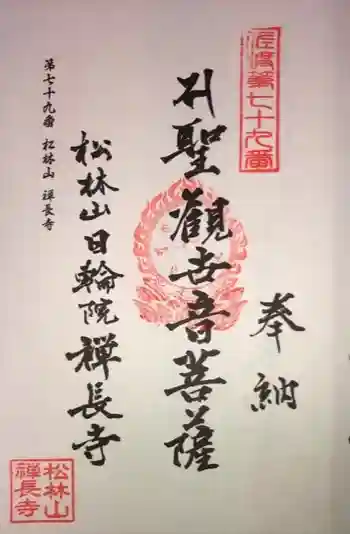 佐渡第七十九番
奉納
聖觀世音菩薩
松林山日輪院禅長寺
第七十九番 松林山 禅長寺
松林山
禅長寺